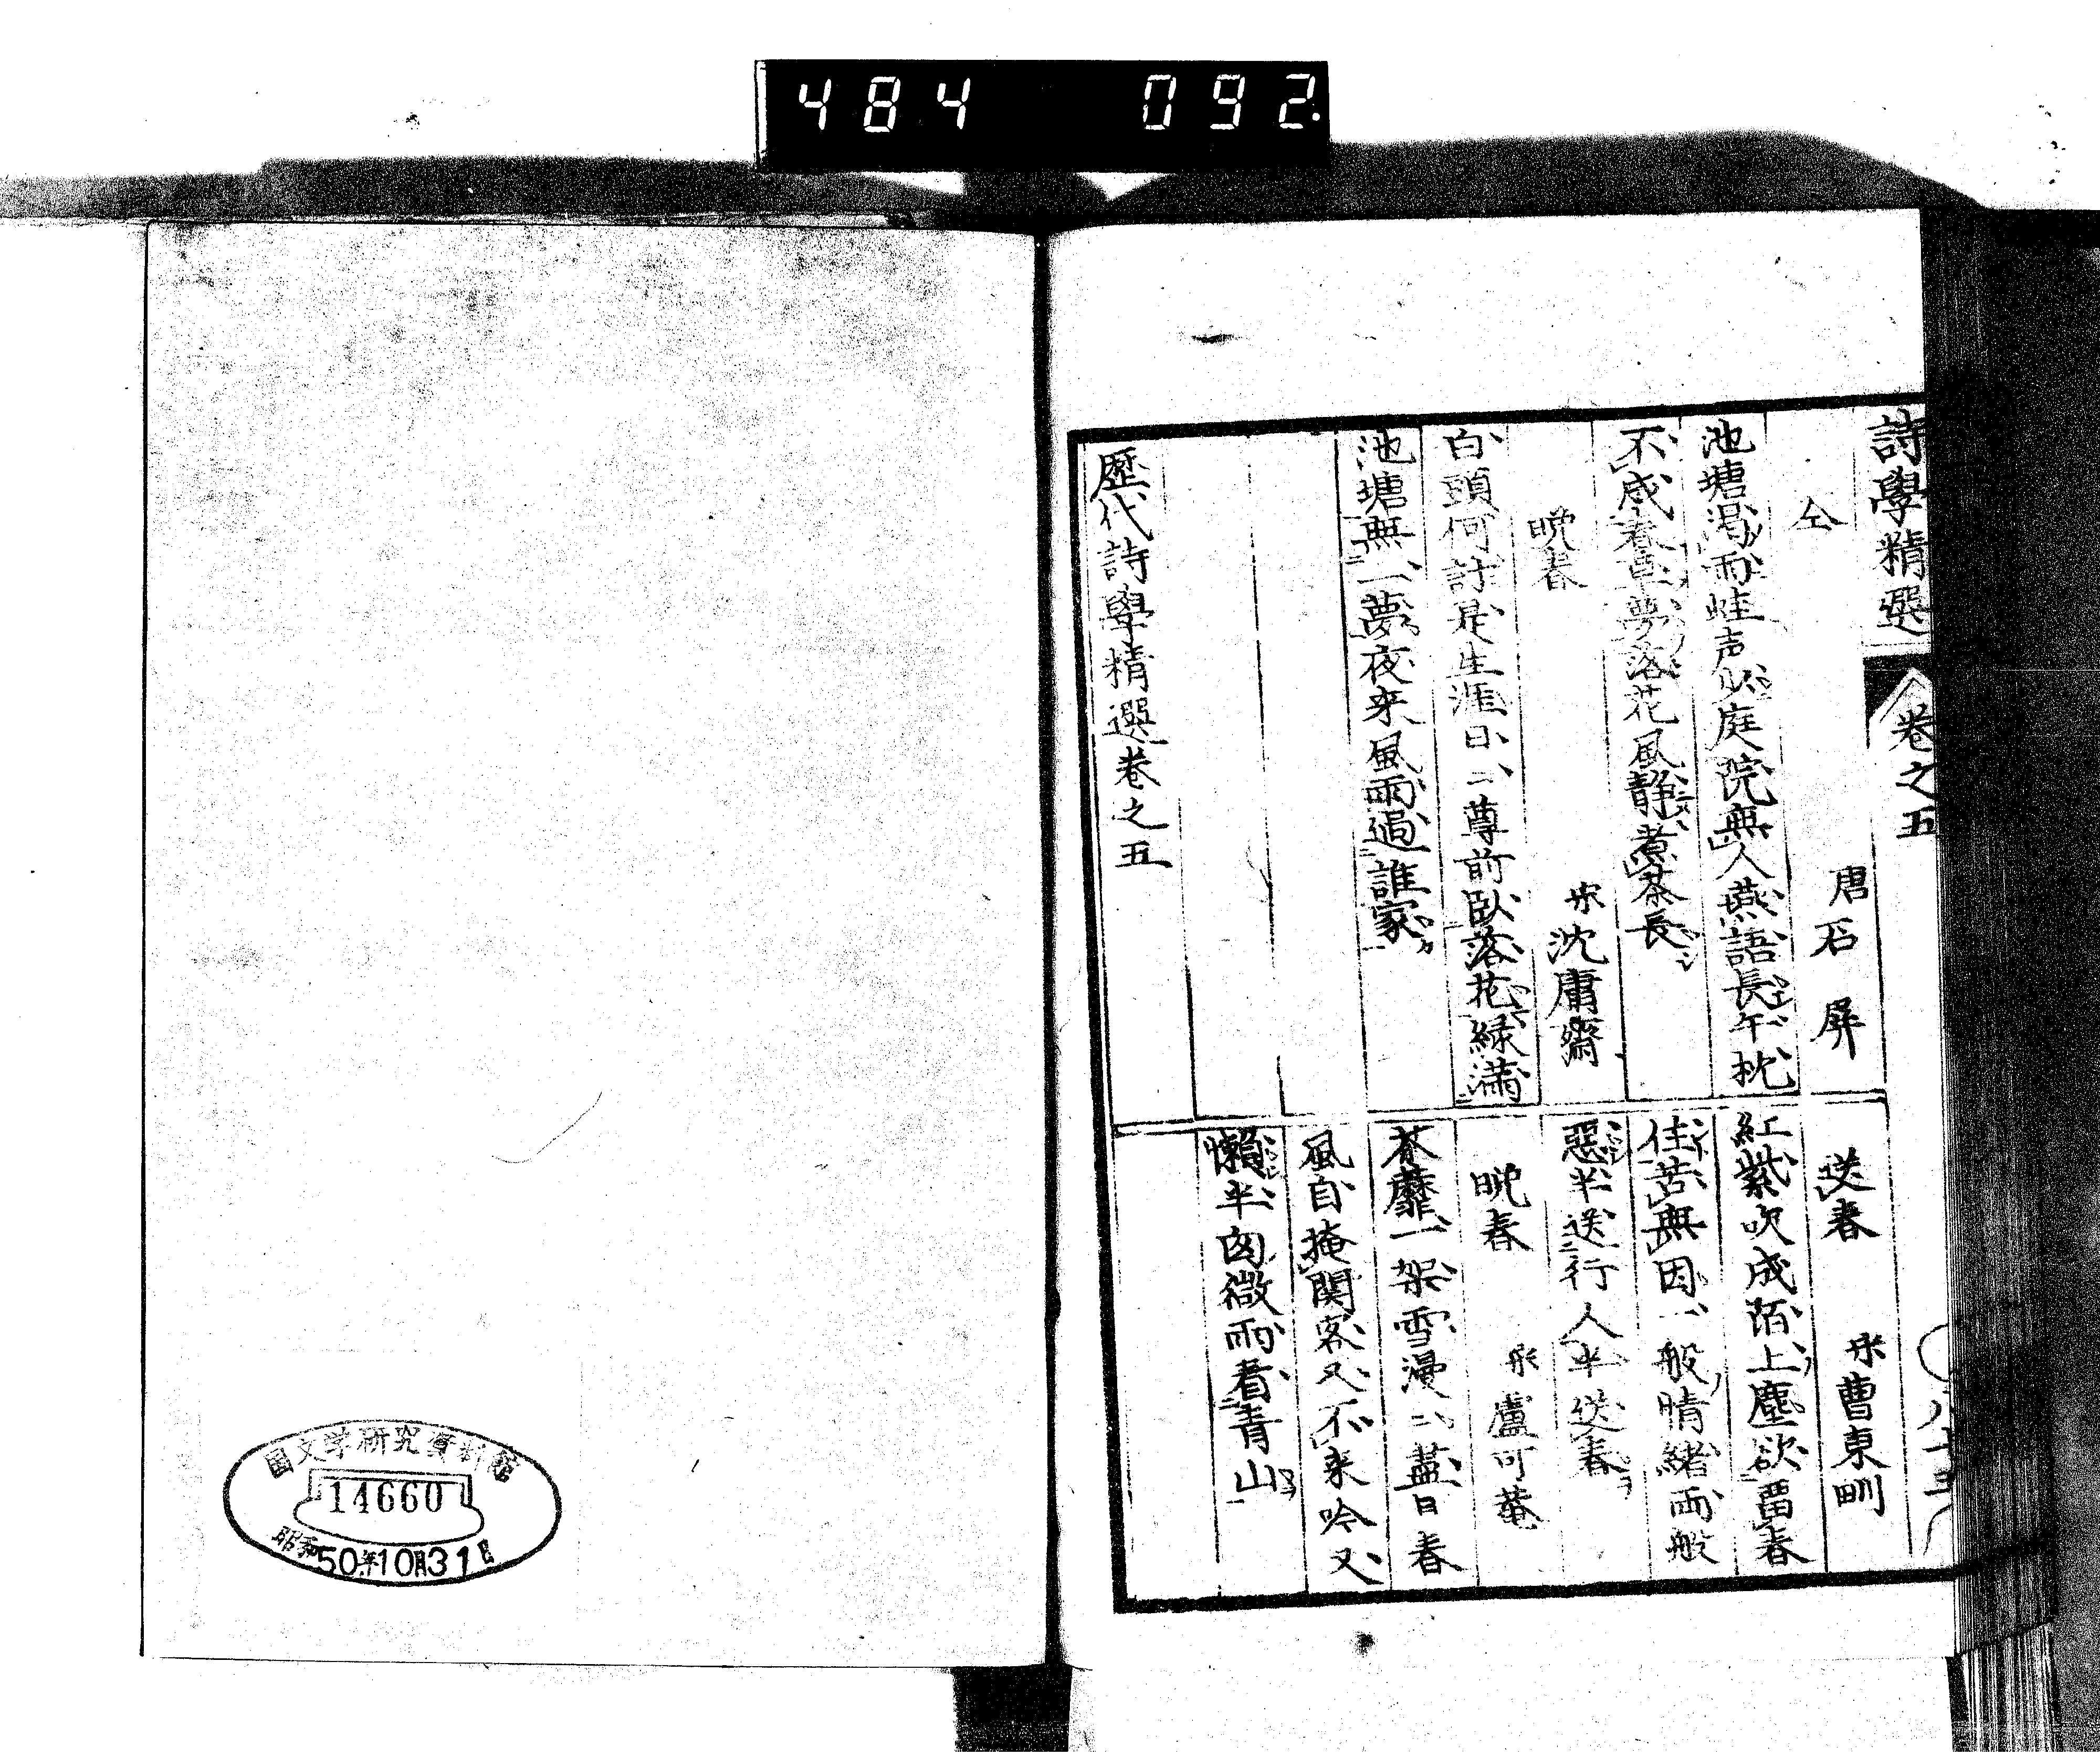 484 092
詩學精選 卷之五
仝 唐石屏
池塘渴雨蛙声少庭院無人燕語長午枕
不成春草夢落花風靜煮茶長
晩春 宋沈庸齋
白頭何計是生涯日〻尊前臥落花緑满
池塘無一夢夜来風雨過誰家
歷代詩學精選卷之五
送春 宋曹東畎
紅紫吹成陌上塵欲畱春
住苦無因一般晴緒兩般
惡半送行人半送春
晩春 宋盧可菴
荼蘼一架雪漫〻盡日春
風自掩関客又不来吟又
懶半囱微雨看青山
國文学研究資料館
14660
昭和50年10月31日